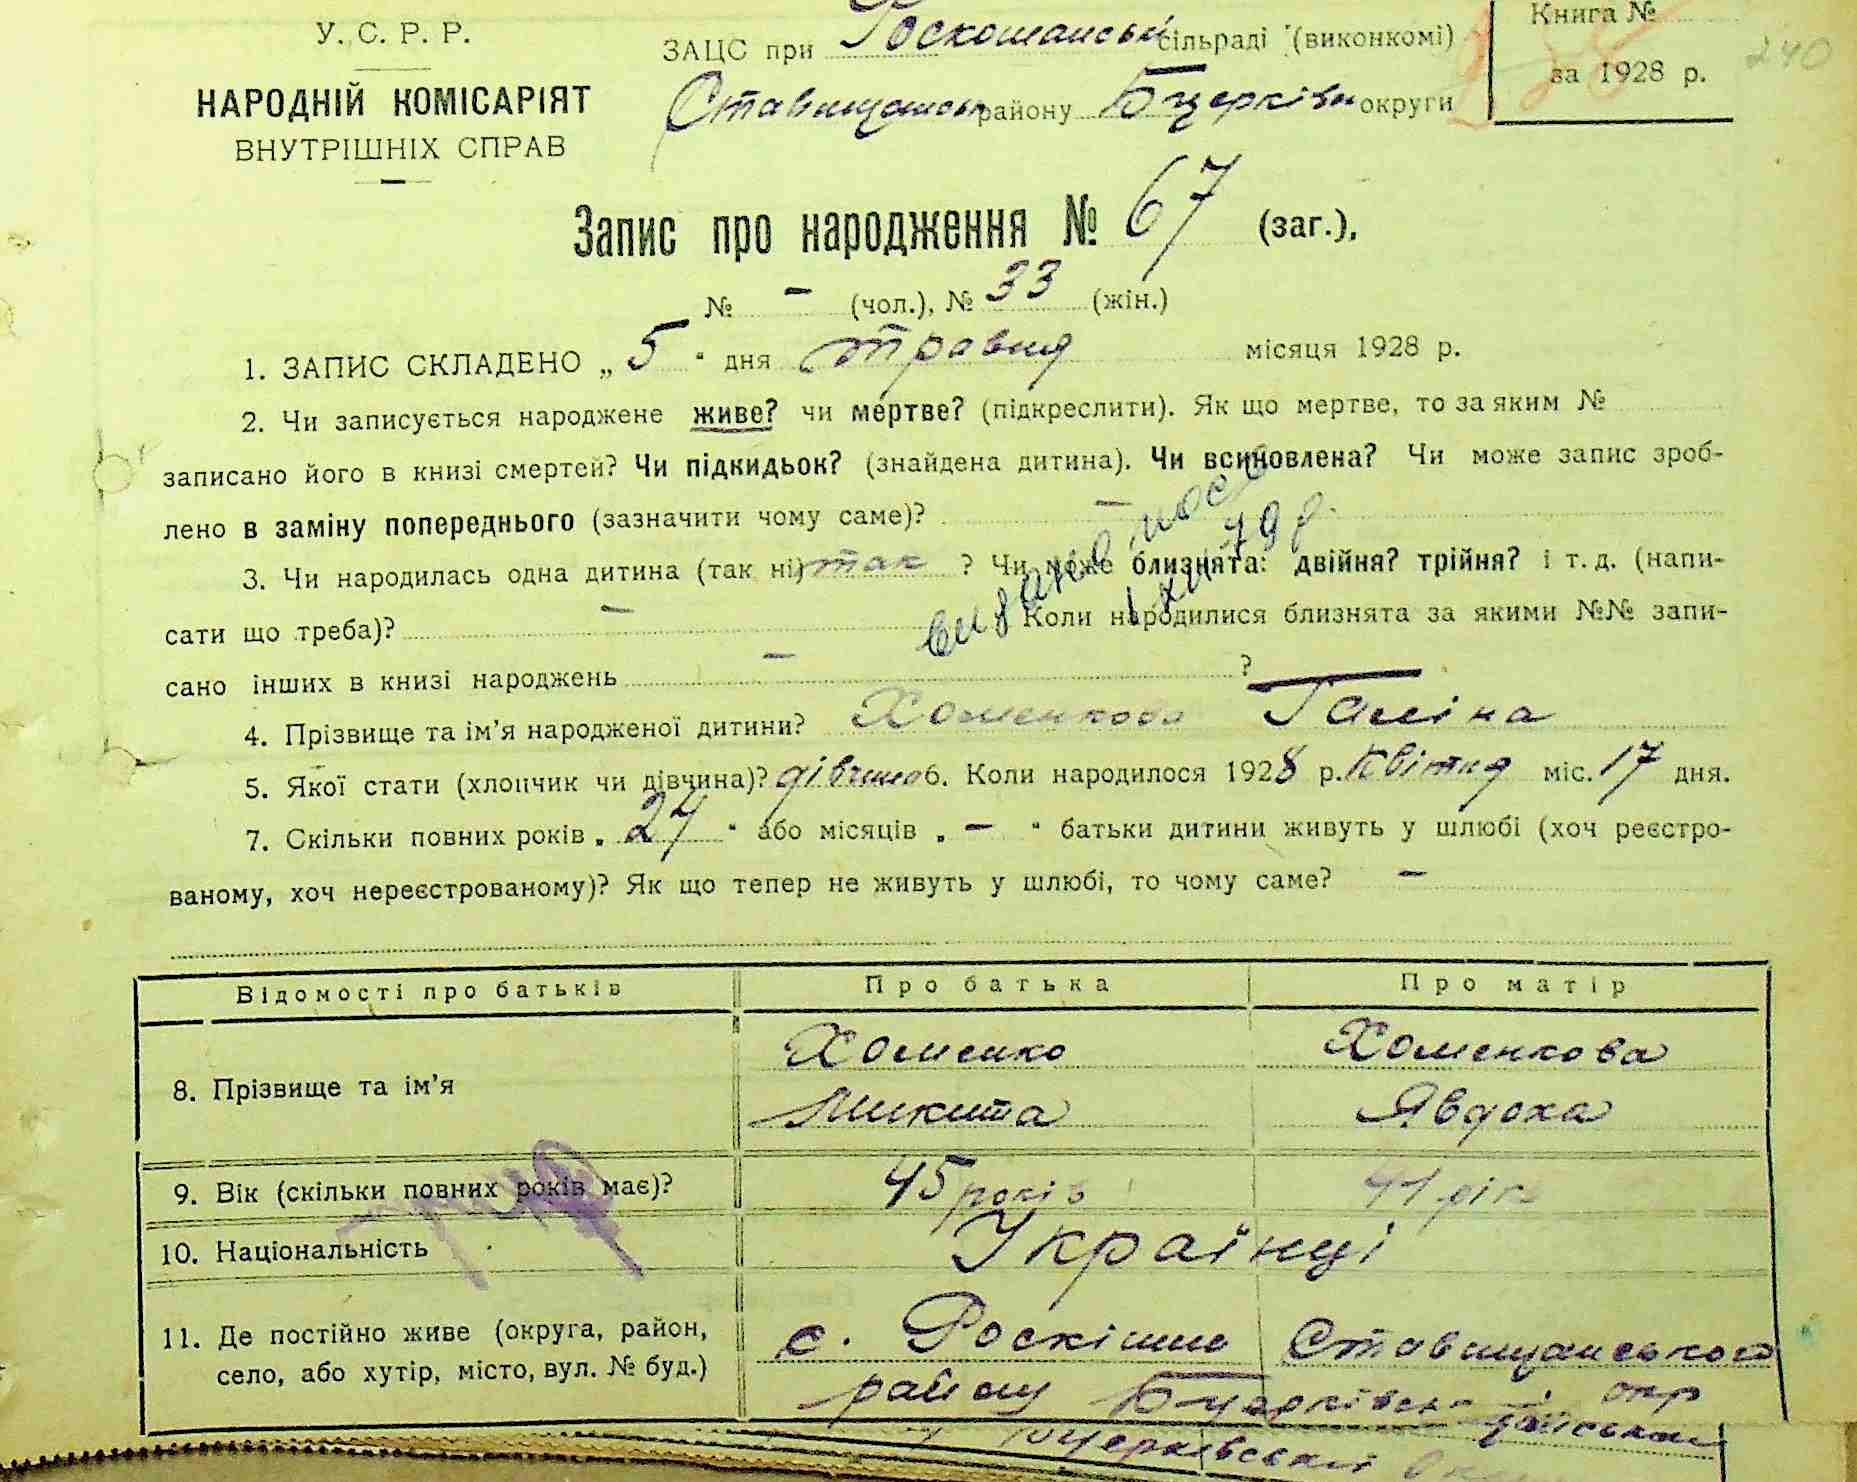 У. С. Р. Р.
НАРОДНІЙ КОМІСАРІЯТ
ВНУТРІШНІХ СПРАВ
ЗАЦС при Роскошанські сільраді (виконкомі)
Ставищанськ району Бцерківськ округи
Книга №
за 1928 р.
240
Запис про народження № 67 (заг.),
№ – (чол.), № 33 (жін.)
1. ЗАПИС СКЛАДЕНО „ 5 “ дня травня місяця 1928 р.
2. Чи записується народжене живе? чи мертве? (підкреслити). Як що мертве, то за яким №
записано його в книзі смертей? Чи підкидьок? (знайдена дитина). Чи всиновлена? Чи може запис зроб-
лено в заміну попереднього (зазначити чому саме)? –
3. Чи народилась одна дитина (так ні) так ? Чи може близнята: двійня? трійня? і т. д. (напи-
сати що треба)? – Коли народилися близнята за якими №№ запи-
сано інших в книзі народжень – ?
4. Прізвище та ім’я народженої дитини? Хоменкова Галіна
5. Якої стати (хлопчик чи дівчина)? дівчина 6. Коли народилося 1928 р. Квітня міс. 17 дня.
7. Скільки повних років „ 24 “ або місяців „ – “ батьки дитини живуть у шлюбі (хоч реєстро-
ваному, хоч нереєстрованому)? Як що тепер не живуть у шлюбі, то чому саме? –
Відомості про батьків Про батька Про матір
8. Прізвище та ім’я
Хоменко Хоменкова
Микита Явдоха
9. Вік (скільки повних років має)? 45 років 41 рік
10. Національність Українці
11. Де постійно живе (округа, район,
село, або хутір, місто, вул. № буд.)
с. Роскішне Ставищанського
району Бцерківськ окр